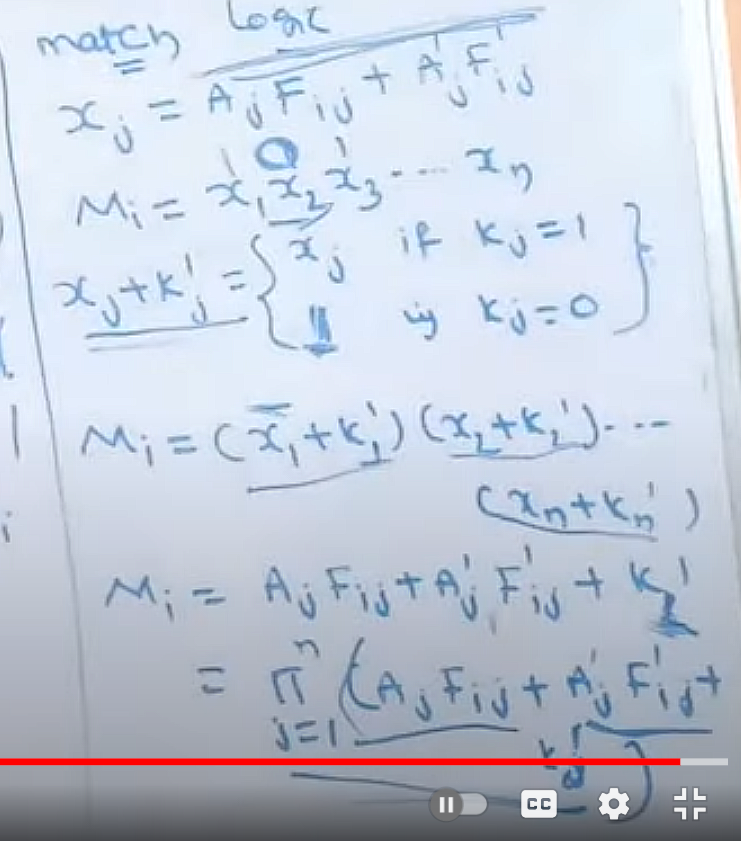 match logic
xj = AjFij + A'jF'ij
1 0 1
Mi = x1x2x3 .... xn
xj + k'j = { xj if kj = 1
1 if kj = 0 }
Mi = (x1 + k1') (x2 + k2') ....
(xn + kn')
Mi = AjFij + A'jF'ij + k'
= n Π j=1 (AjFij + A'jF'ij +
k'j)
CC